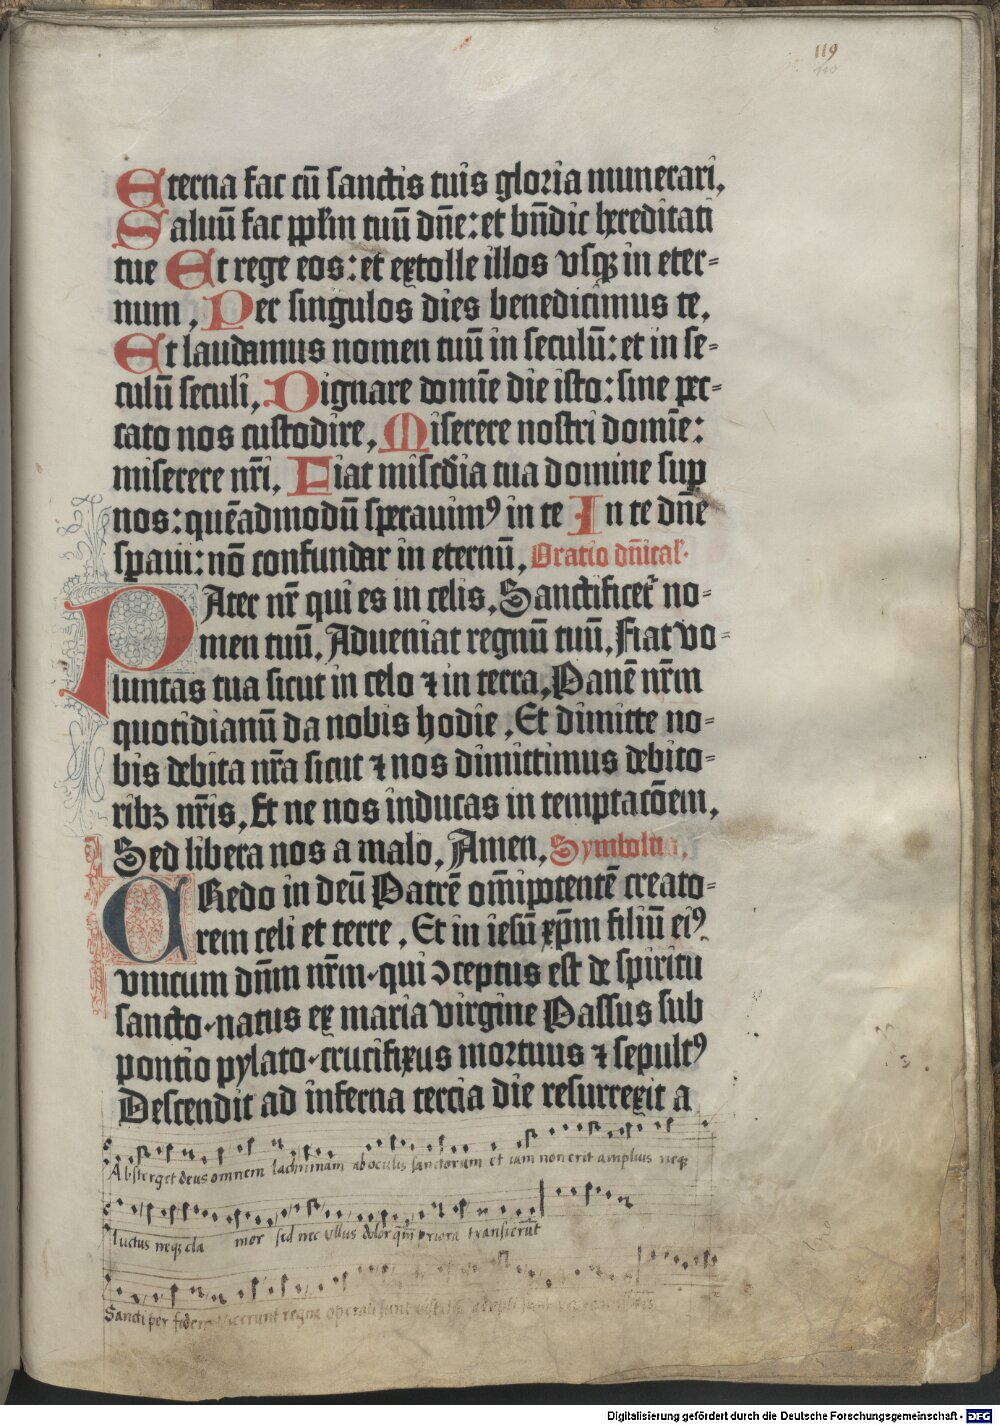 119
110
Eterna fac cū sanctis tuis gloria munerari,
Saluū fac ppl'm tuū dn̄e: et bn̄dic hereditati
tue Et rege eos: et extolle illos vsqȝ in eter-
num, Per singulos dies benedicimus te,
Et laudamus nomen tuū in seculū: et in se-
culū seculi, Dignare domīe die isto: sine pec-
cato nos custodire, Miserere nostri domīe:
miserere nr̄i, Fiat mīscd'ia tua domine sup
nos: quēadmodū sperauimꝰ in te In te dn̄e
spaui: nō confundar in eternū, Oratio dn̄ical'.
PAter nr̄ qui es in celis, Sanctificet' no-
men tuū, Adueniat regnū tuū, Fiat vo-
luntas tua sicut in celo ⁊ in terra, Panē nr̄m
quotidianū da nobis hodie, Et dimitte no-
bis debita nr̄a sicut ⁊ nos dimittimus debito-
ribȝ nr̄is, Et ne nos inducas in temptacōem,
Sed libera nos a malo, Amen, Symbolum,
CRedo in deū Patrē om̄ipotentē creato-
rem celi et terre, Et in iesū xp̄m filiū eiꝰ
vnicum dn̄m nr̄m·qui ↄceptus est de spiritu
sancto·natus ex maria virgine Passus sub
pontio pylato·crucifixus mortuus ⁊ sepultꝰ
Descendit ad inferna tercia die resurrexit a
Absterget deus omnem lachrimam ab oculis sanctorum et iam non erit amplius neqȝ
luctus neqȝ cla mor sed nec vllus dolor qm̄ priora transierūt
Sancti per fidem vicerunt regna operati sunt
Digitalisierung gefördert durch die Deutsche Forschungsgemeinschaft - DFG